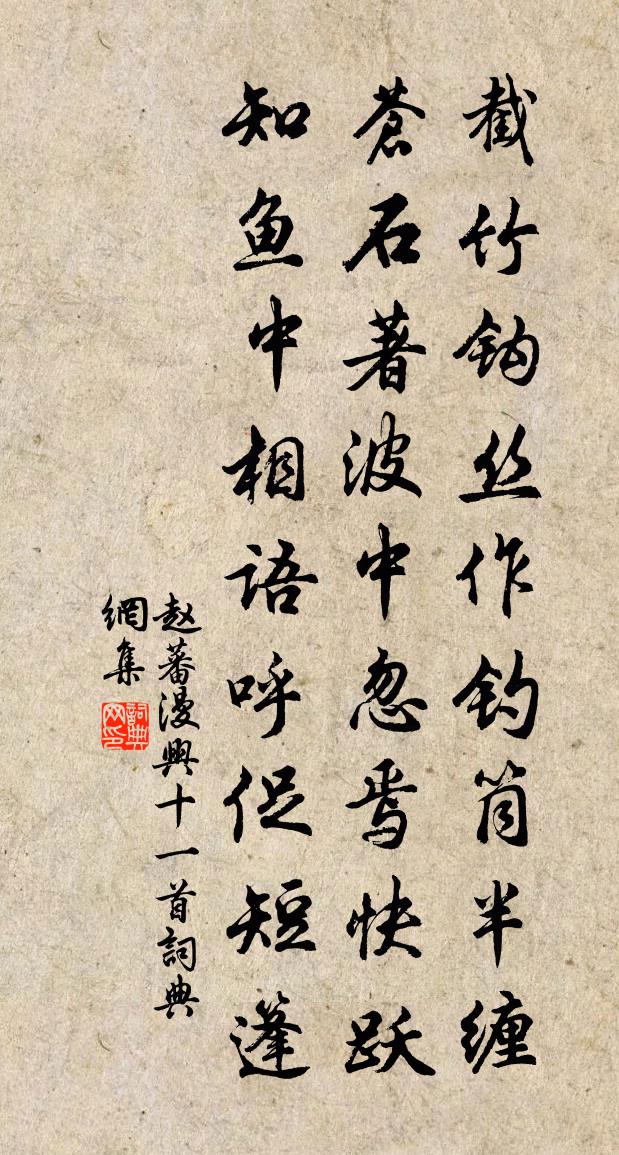 截竹钩丝作钓筒半缠
苍石著波中忽焉快跃
知鱼中相语呼促短篷
赵蕃漫興十一首詞典
網集
詞典网印